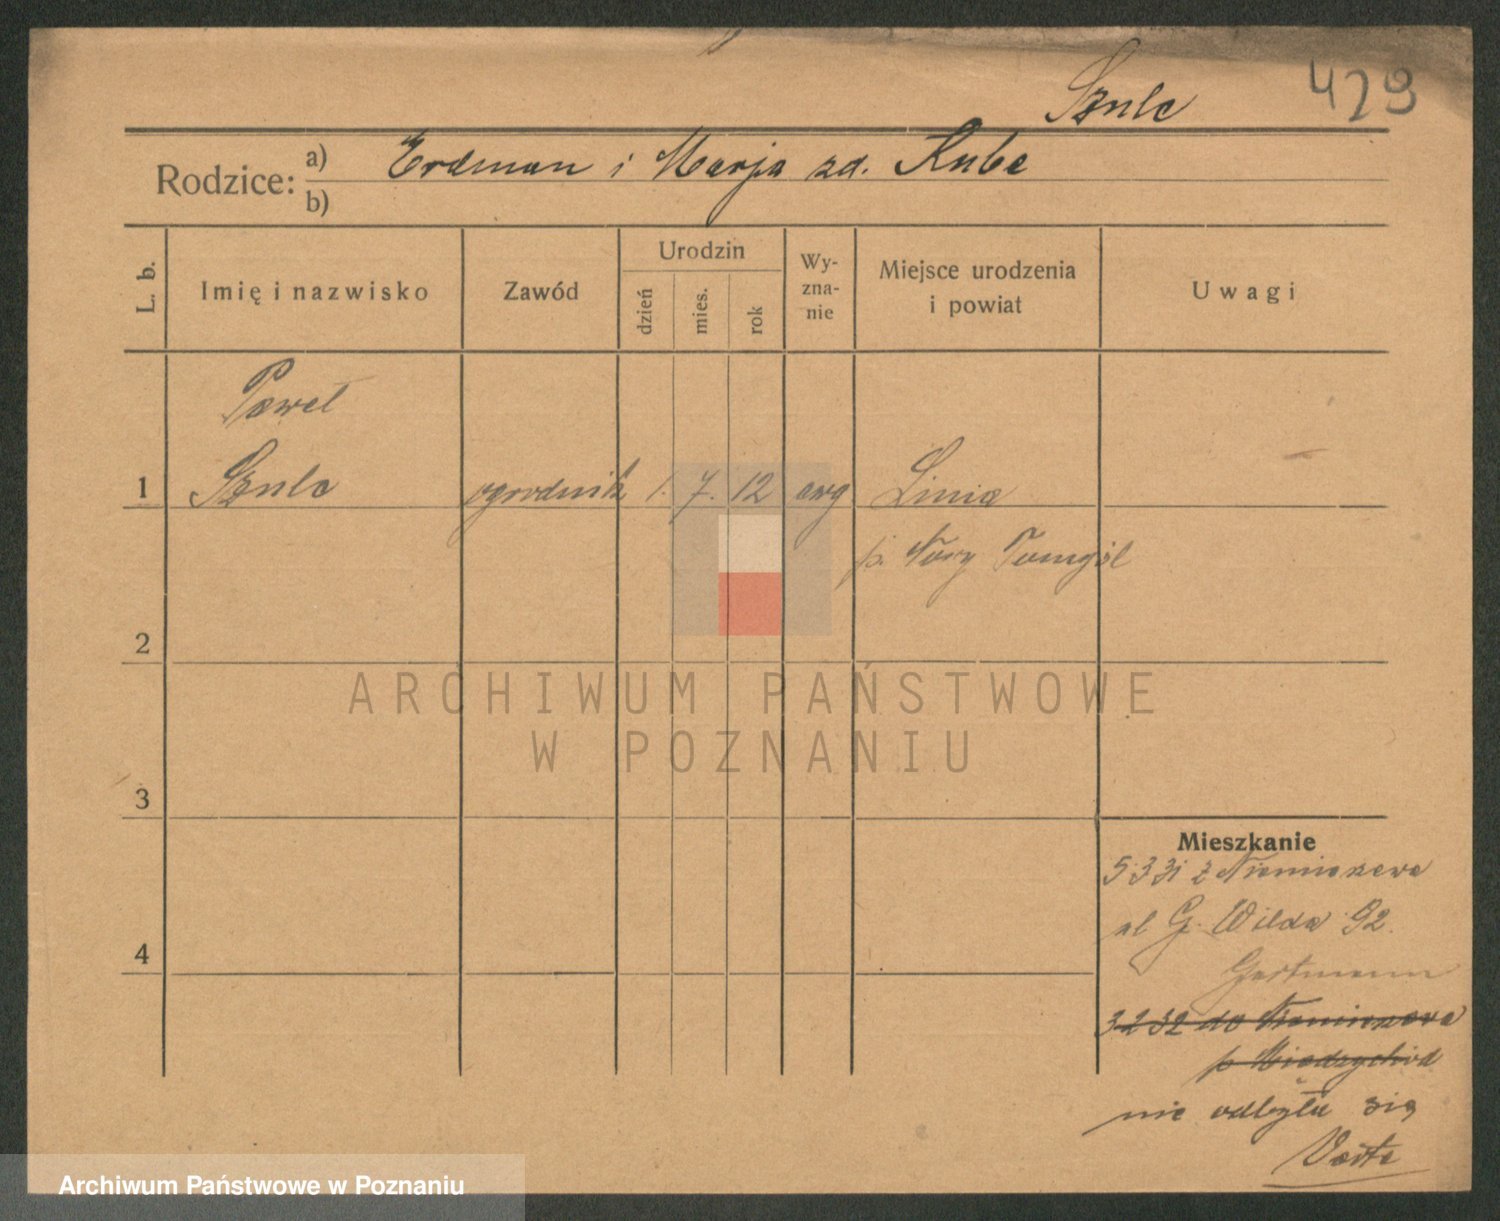 Szulc
429
Rodzice: a) Erdman i Marja zd. Kube
b)
L. b.
Imię i nazwisko
Zawód
Urodzin
dzień
mies.
rok
Wy-
zna-
nie
Miejsce urodzenia
i powiat
Uwagi
Paweł
1 Szulc ogrodnik 1. 7. 12 ewg Linia
p. Nowy Tomyśl
2
ARCHIWUM PAŃSTWOWE
W POZNANIU
3
Mieszkanie
5 3 31 z Niemierzewa
ul G. Wilda 92.
4
Gartmann
3 2 32 do Niemierzewa
p Międzychód
nie odbyła się
Archiwum Państwowe w Poznaniu